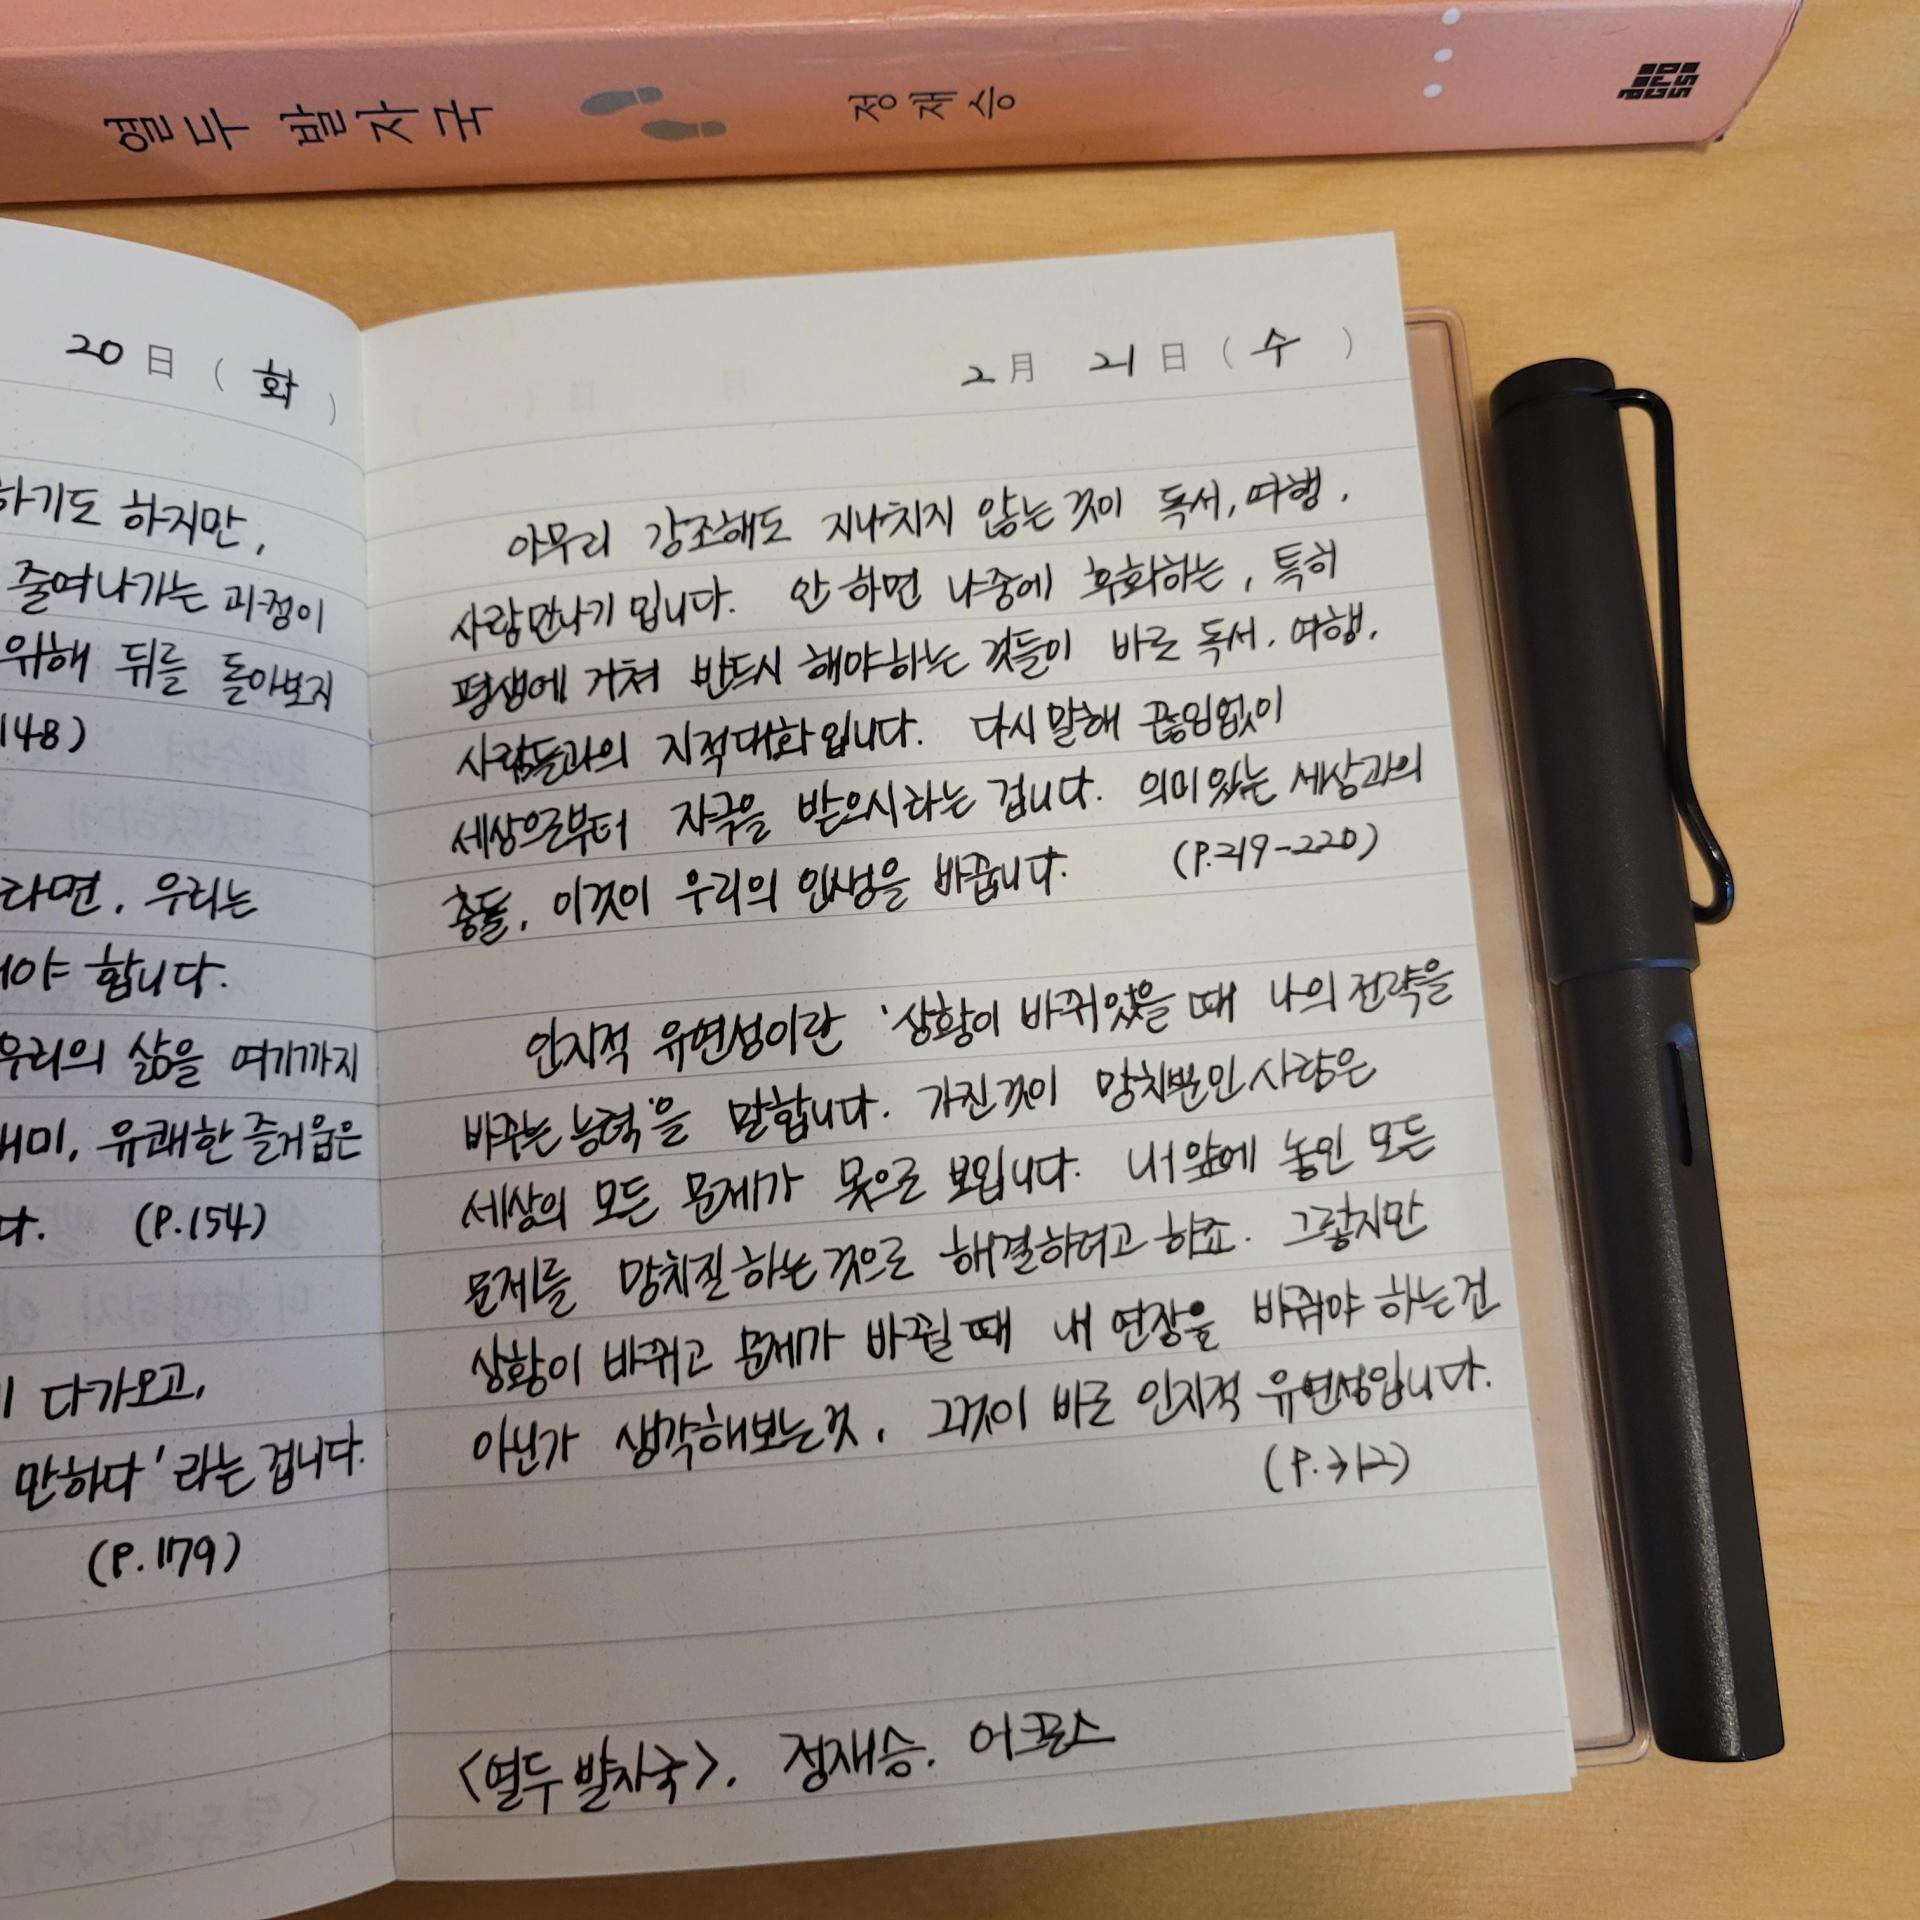 열두 발자국 정재승
20日 (화)
하기도 하지만,
줄여나가는 과정이
위해 뒤를 돌아보지
148)
라면, 우리는
야 합니다.
우리의 삶을 여기까지
재미, 유쾌한 즐거움은
다. (P.154)
다가오고,
만하다'라는 겁니다.
(P.179)
2月 21日 (수)
아무리 강조해도 지나치지 않는 것이 독서, 여행,
사람만나기 입니다. 안 하면 나중에 후회하는, 특히
평생에 거쳐 반드시 해야하는 것들이 바로 독서, 여행,
사람들과의 지적대화입니다. 다시 말해 끊임없이
세상으로부터 자극을 받으시라는 겁니다. 의미있는 세상과의
충돌, 이것이 우리의 인생을 바꿉니다. (P.219-220)
인지적 유연성이란 '상황이 바뀌었을 때 나의 전략을
바꾸는 능력'을 말합니다. 가진 것이 망치뿐인 사람은
세상의 모든 문제가 못으로 보입니다. 내 앞에 놓인 모든
문제를 망치질 하는 것으로 해결하려고 하죠. 그렇지만
상황이 바뀌고 문제가 바뀔 때 내 연장을 바꿔야 하는건
아닌가 생각해보는 것, 그것이 바로 인지적 유연성입니다.
(P.312)
<열두 발자국>, 정재승, 어크로스